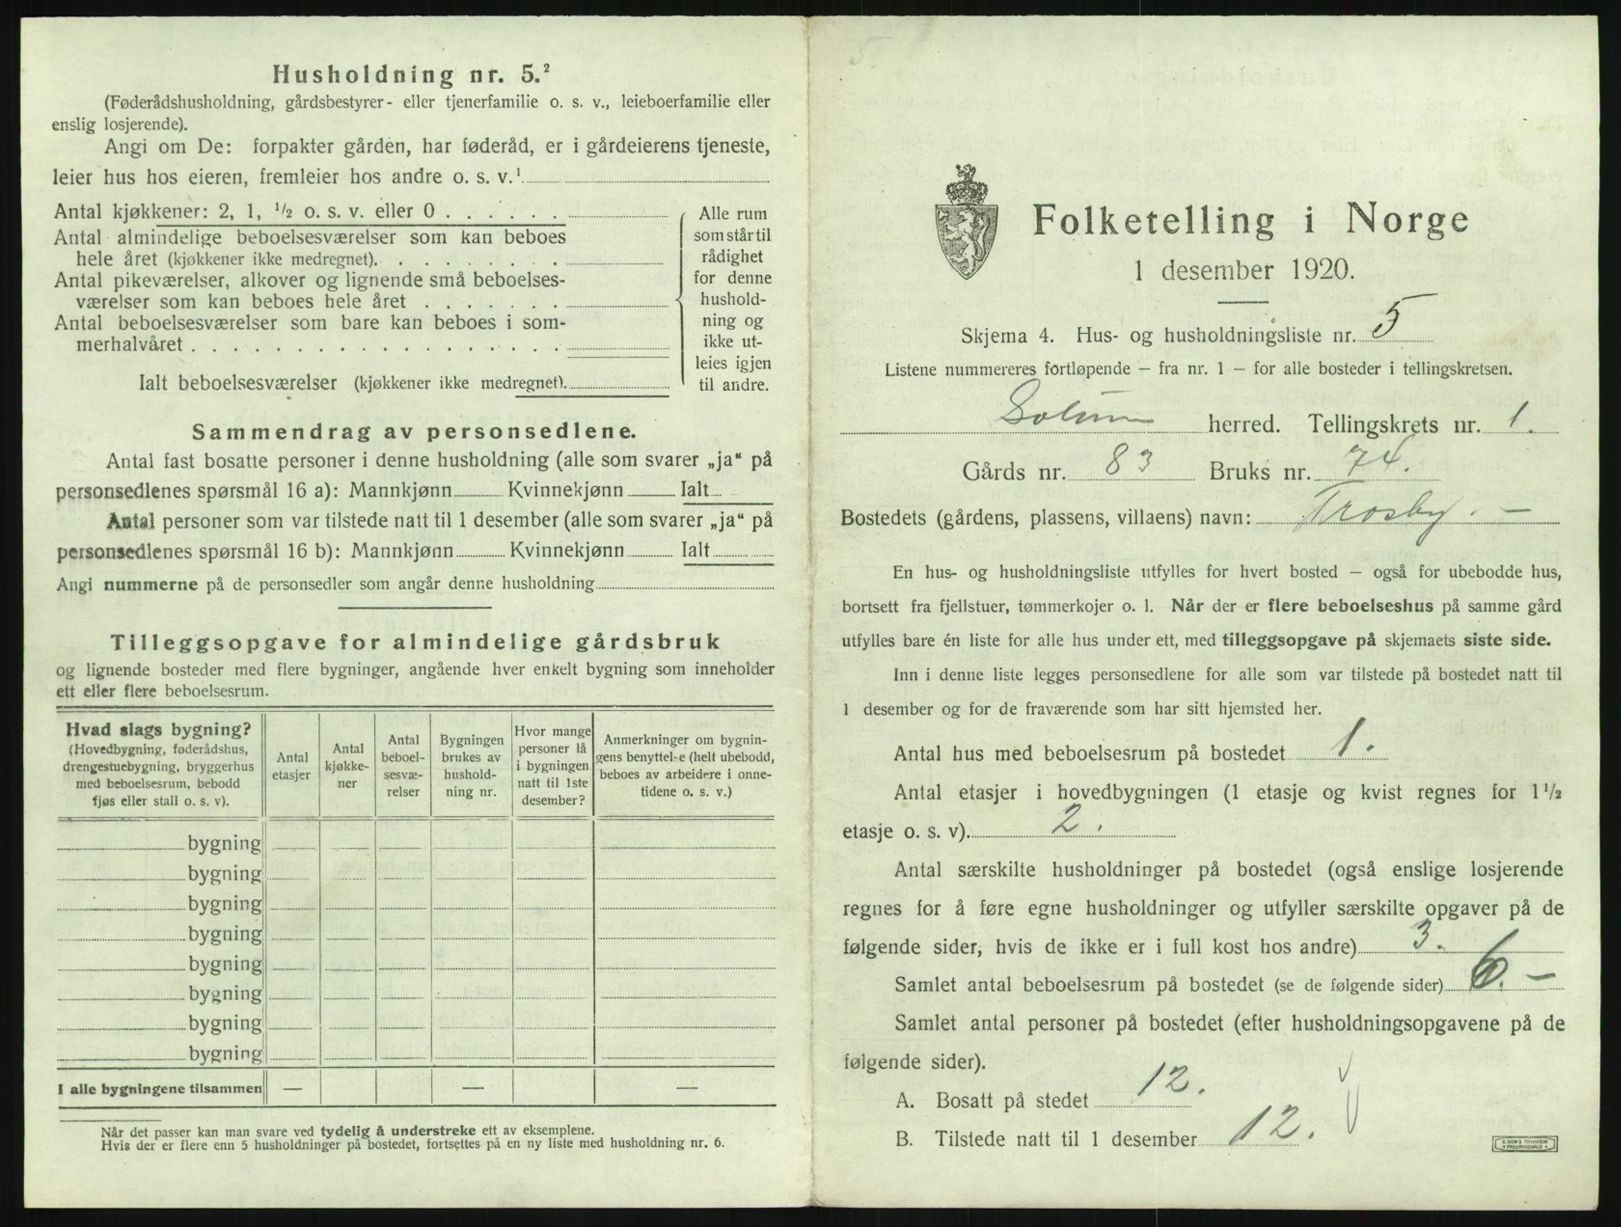 Husholdning nr. 5.²
(Føderådshusholdning, gårdsbestyrer- eller tjenerfamilie o. s. v., leieboerfamilie eller
enslig losjerende).
Angi om De: forpakter gården, har føderåd, er i gårdeierens tjeneste,
leier hus hos eieren, fremleier hos andre o. s. v.¹
Antal kjøkkener: 2, 1, ½ o. s. v. eller 0 . . . . . .
Antal almindelige beboelsesværelser som kan beboes
hele året (kjøkkener ikke medregnet). . . . . . . .
Antal pikeværelser, alkover og lignende små beboelses-
værelser som kan beboes hele året . . . . . . .
Antal beboelsesværelser som bare kan beboes i som-
merhalvåret . . . . . . . . . . . . . . . . . .
Ialt beboelsesværelser (kjøkkener ikke medregnet).
Alle rum
som står til
rådighet
for denne
hushold-
ning og
ikke ut-
leies igjen
til andre.
Sammendrag av personsedlene.
Antal fast bosatte personer i denne husholdning (alle som svarer „ja“ på
personsedlenes spørsmål 16 a): Mannkjønn Kvinnekjønn Ialt
Antal personer som var tilstede natt til 1 desember (alle som svarer „ja“ på
personsedlenes spørsmål 16 b): Mannkjønn Kvinnekjønn Ialt
Angi nummerne på de personsedler som angår denne husholdning
Tilleggsopgave for almindelige gårdsbruk
og lignende bosteder med flere bygninger, angående hver enkelt bygning som inneholder
ett eller flere beboelsesrum.
Hvad slags bygning?
(Hovedbygning, føderådshus,
drengestuebygning, bryggerhus
med beboelsesrum, bebodd
fjøs eller stall o. s. v).
Antal
etasjer
Antal
kjøkke-
ner
Antal
beboel-
sesvæ-
relser
Bygningen
brukes av
hushold-
ning nr.
Hvor mange
personer lå
i bygningen
natt til 1ste
desember?
Anmerkninger om bygnin-
gens benyttelse (helt ubebodd,
beboes av arbeidere i onne-
tidene o. s. v.)
bygning
bygning
bygning
bygning
bygning
bygning
bygning
bygning
I alle bygningene tilsammen — — —
Når det passer kan man svare ved tydelig å understreke ett av eksemplene.
Hvis der er flere enn 5 husholdninger på bostedet, fortsettes på en ny liste med husholdning nr. 6.
Folketelling i Norge
1 desember 1920.
Skjema 4. Hus- og husholdningsliste nr. 5
Listene nummereres fortløpende — fra nr. 1 — for alle bosteder i tellingskretsen.
Solum herred. Tellingskrets nr. 1.
Gårds nr. 83 Bruks nr. 74.
Bostedets (gårdens, plassens, villaens) navn: Trosby. —
En hus- og husholdningsliste utfylles for hvert bosted — også for ubebodde hus,
bortsett fra fjellstuer, tømmerkojer o. l. Når der er flere beboelseshus på samme gård
utfylles bare én liste for alle hus under ett, med tilleggsopgave på skjemaets siste side.
Inn i denne liste legges personsedlene for alle som var tilstede på bostedet natt til
1 desember og for de fraværende som har sitt hjemsted her.
Antal hus med beboelsesrum på bostedet 1.
Antal etasjer i hovedbygningen (1 etasje og kvist regnes for 1½
etasje o. s. v). 2.
Antal særskilte husholdninger på bostedet (også enslige losjerende
regnes for å føre egne husholdninger og utfyller særskilte opgaver på de
følgende sider, hvis de ikke er i full kost hos andre) 3.
Samlet antal beboelsesrum på bostedet (se de følgende sider) 6. —
Samlet antal personer på bostedet (efter husholdningsopgavene på de
følgende sider).
A. Bosatt på stedet 12.
B. Tilstede natt til 1 desember 12.